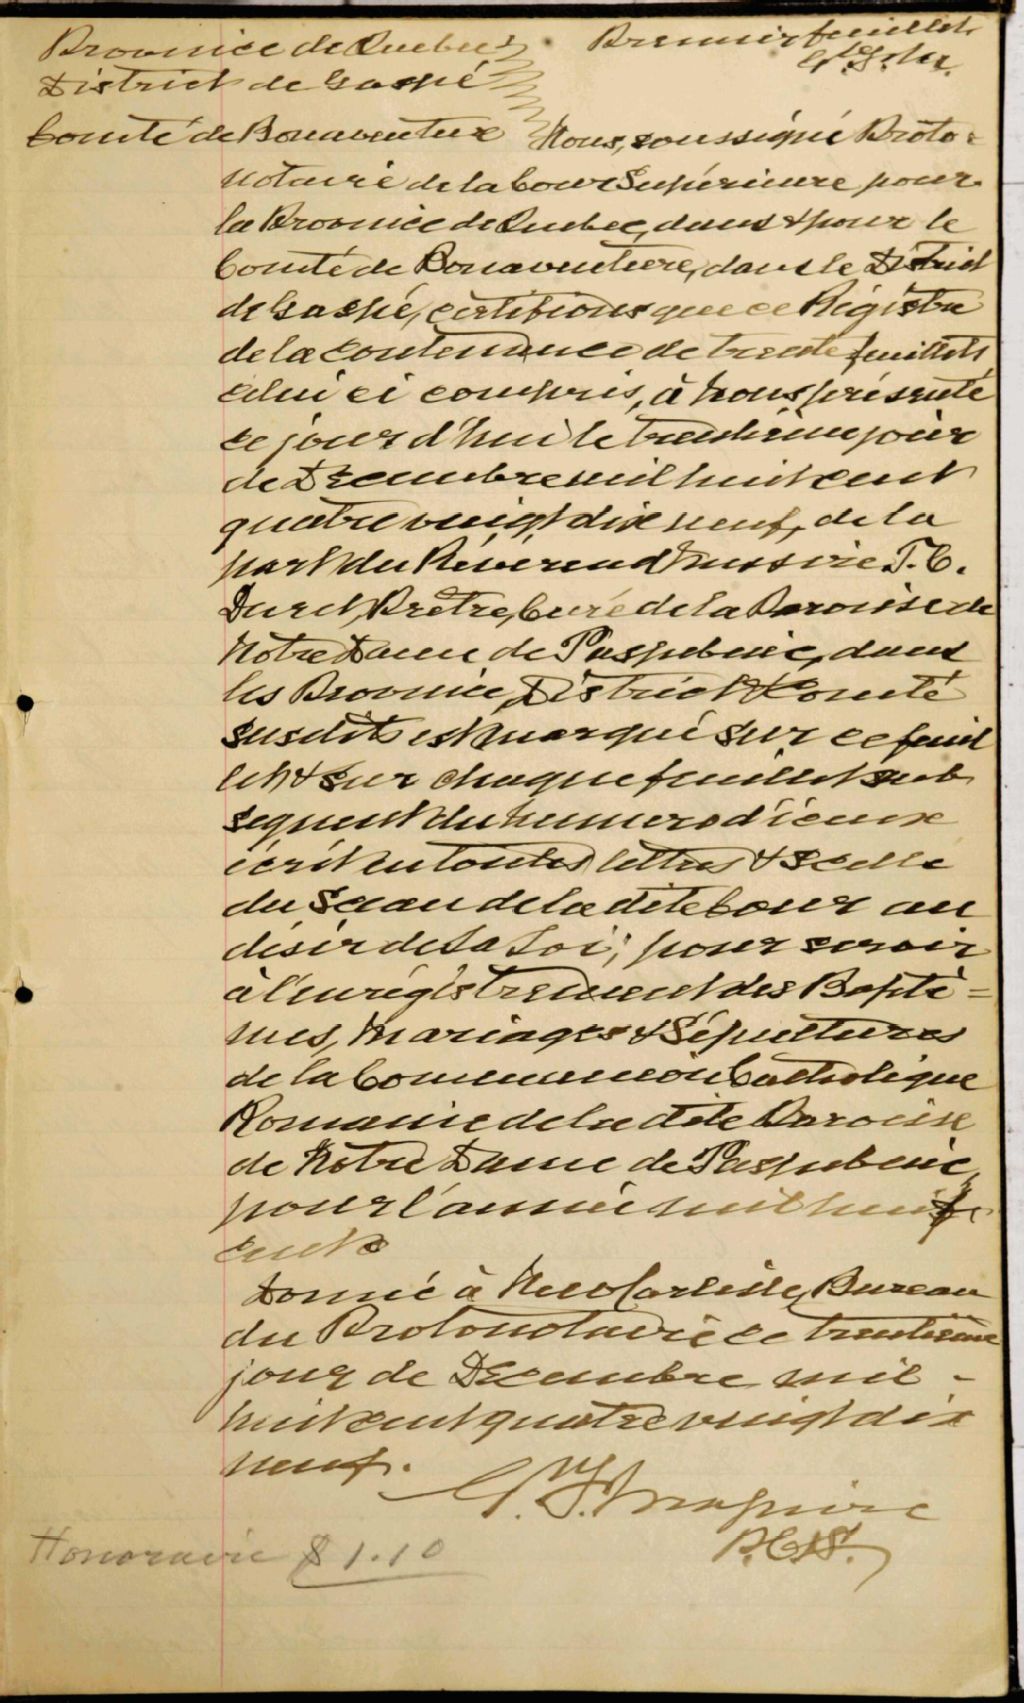 Province de Quebec
District de Gaspé
Comté de Bonaventure
Premier feuillet
Nous, soussigné Proto-
notaire de la Cour Supérieure pour
la Province de Quebec, dans & pour le
Comté de Bonaventure, dans le District
de Gaspé, certifions que ce Régistre
de la contenance de trente feuillets
celui ci compris, à nous présenté
ce jour d'hui le trentième jour
de Décembre mil huit cent
quatre vingt dix neuf, de la
part du Révérend Messire T. C.
Duret, Prêtre, Curé de la Paroisse de
Notre Dame de Paspebiac, dans
les Province, District & Comté
susdits est marqué sur ce feuil
let & sur chaque feuillet sub
sequent du numero d'iceux
écrit en toutes lettres & scellé
du Sceau de la dite Cour au
désir de la Loi; pour servir
à l'enrégistrement des Baptê=
mes, Mariages & Sépultures
de la Communion Catholique
Romaine de la dite Paroisse
de Notre Dame de Paspebiac,
pour l'année mil neuf
cent
Donné à New Carlisle, Bureau
du Protonotaire ce trentième
jour de Décembre mil -
huit cent quatre vingt dix
neuf.
Maguire
P.C.S.
Honoraire $1.10